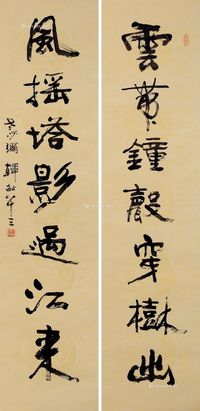 雲帶鐘聲穿樹出
風搖塔影過江來